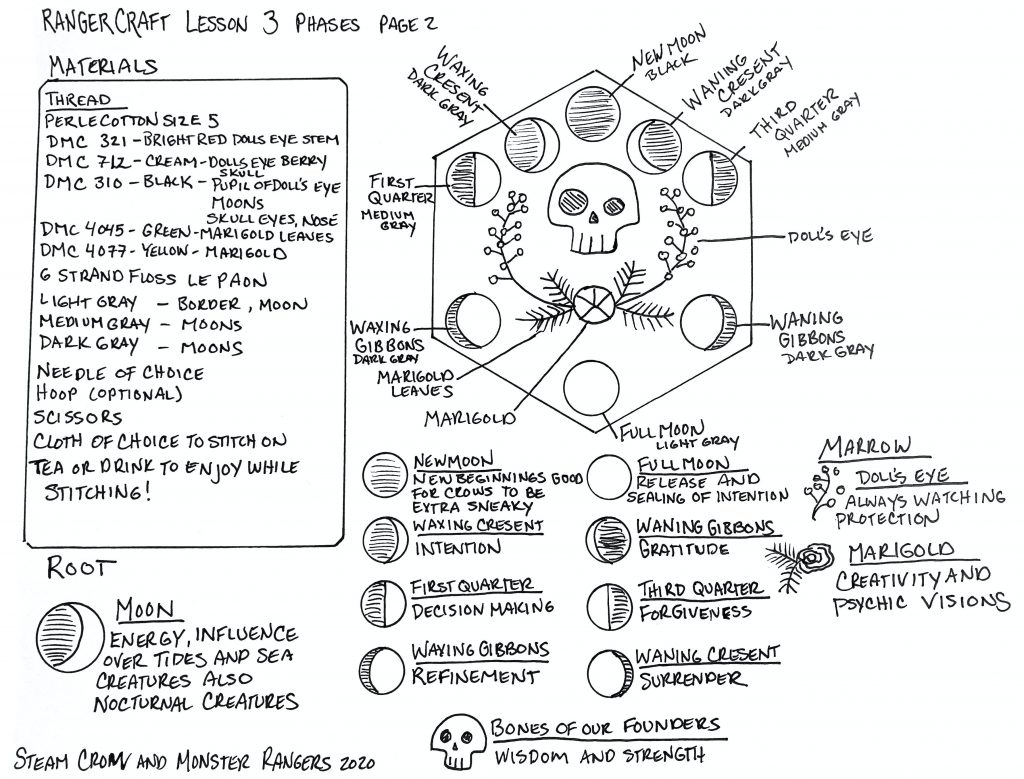 RANGERCRAFT LESSON 3 PHASES PAGE 2
MATERIALS
THREAD
PERLE COTTON SIZE 5
DMC 321 - BRIGHT RED DOLLS EYE STEM
DMC 712 - CREAM - DOLLS EYE BERRY
SKULL
DMC 310 - BLACK - PUPIL OF DOLL'S EYE
MOONS
SKULL EYES, NOSE
DMC 4045 - GREEN - MARIGOLD LEAVES
DMC 4077 - YELLOW - MARIGOLD
6 STRAND FLOSS LE PAON
LIGHT GRAY - BORDER, MOON
MEDIUM GRAY - MOONS
DARK GRAY - MOONS
NEEDLE OF CHOICE
HOOP (OPTIONAL)
SCISSORS
CLOTH OF CHOICE TO STITCH ON
TEA OR DRINK TO ENJOY WHILE
STITCHING!
WAXING
CRESENT
DARK GRAY
NEW MOON
BLACK
WANIING
CRESENT
DARK GRAY
THIRD
QUARTER
MEDIUM GRAY
FIRST
QUARTER
MEDIUM
GRAY
DOLL'S EYE
WAXING
GIBBONS
DARK GRAY
WANING
GIBBONS
DARK GRAY
MARIGOLD
LEAVES
MARIGOLD
FULL MOON
LIGHT GRAY
ROOT
MOON
ENERGY, INFLUENCE
OVER TIDES AND SEA
CREATURES ALSO
NOCTURNAL CREATURES
NEW MOON
NEW BEGINNINGS GOOD
FOR CROWS TO BE
EXTRA SNEAKY
WAXING CRESENT
INTENTION
FIRST QUARTER
DECISION MAKING
WAXING GIBBONS
REFINEMENT
FULL MOON
RELEASE AND
SEALING OF INTENTION
WANING GIBBONS
GRATITUDE
THIRD QUARTER
FORGIVENESS
WANING CRESENT
SURRENDER
MARROW
DOLL'S EYE
ALWAYS WATCHING
PROTECTION
MARIGOLD
CREATIVITY AND
PSYCHIC VISIONS
BONES OF OUR FOUNDERS
WISDOM AND STRENGTH
STEAM CROW AND MONSTER RANGERS 2020